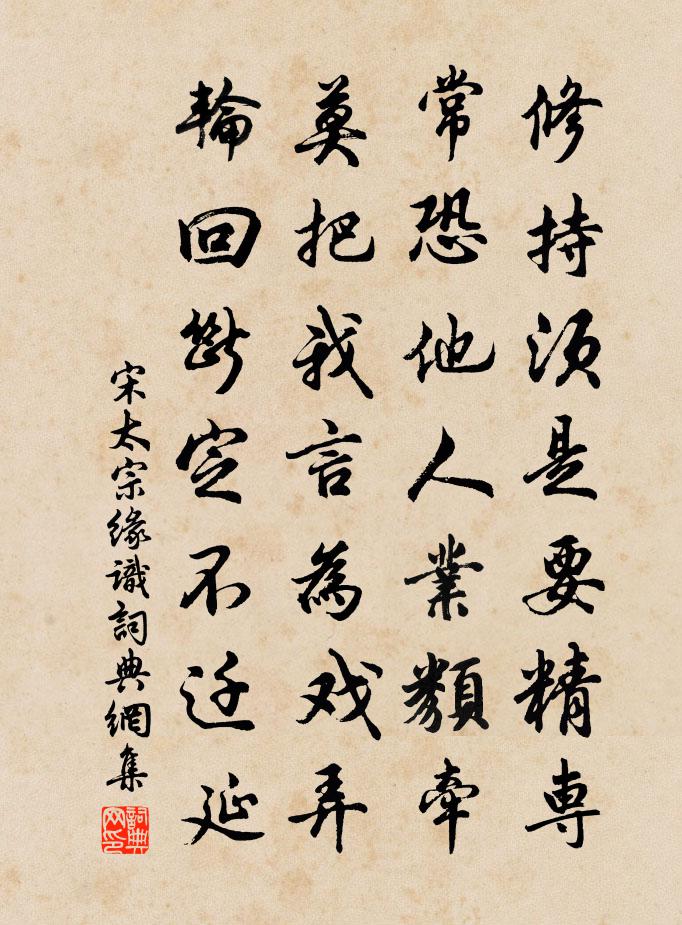 修持須是要精専
常恐他人業類牽
莫把我言為戏弄
輪回斷定不迁延
宋太宗緣識詞典網集
詞典網印